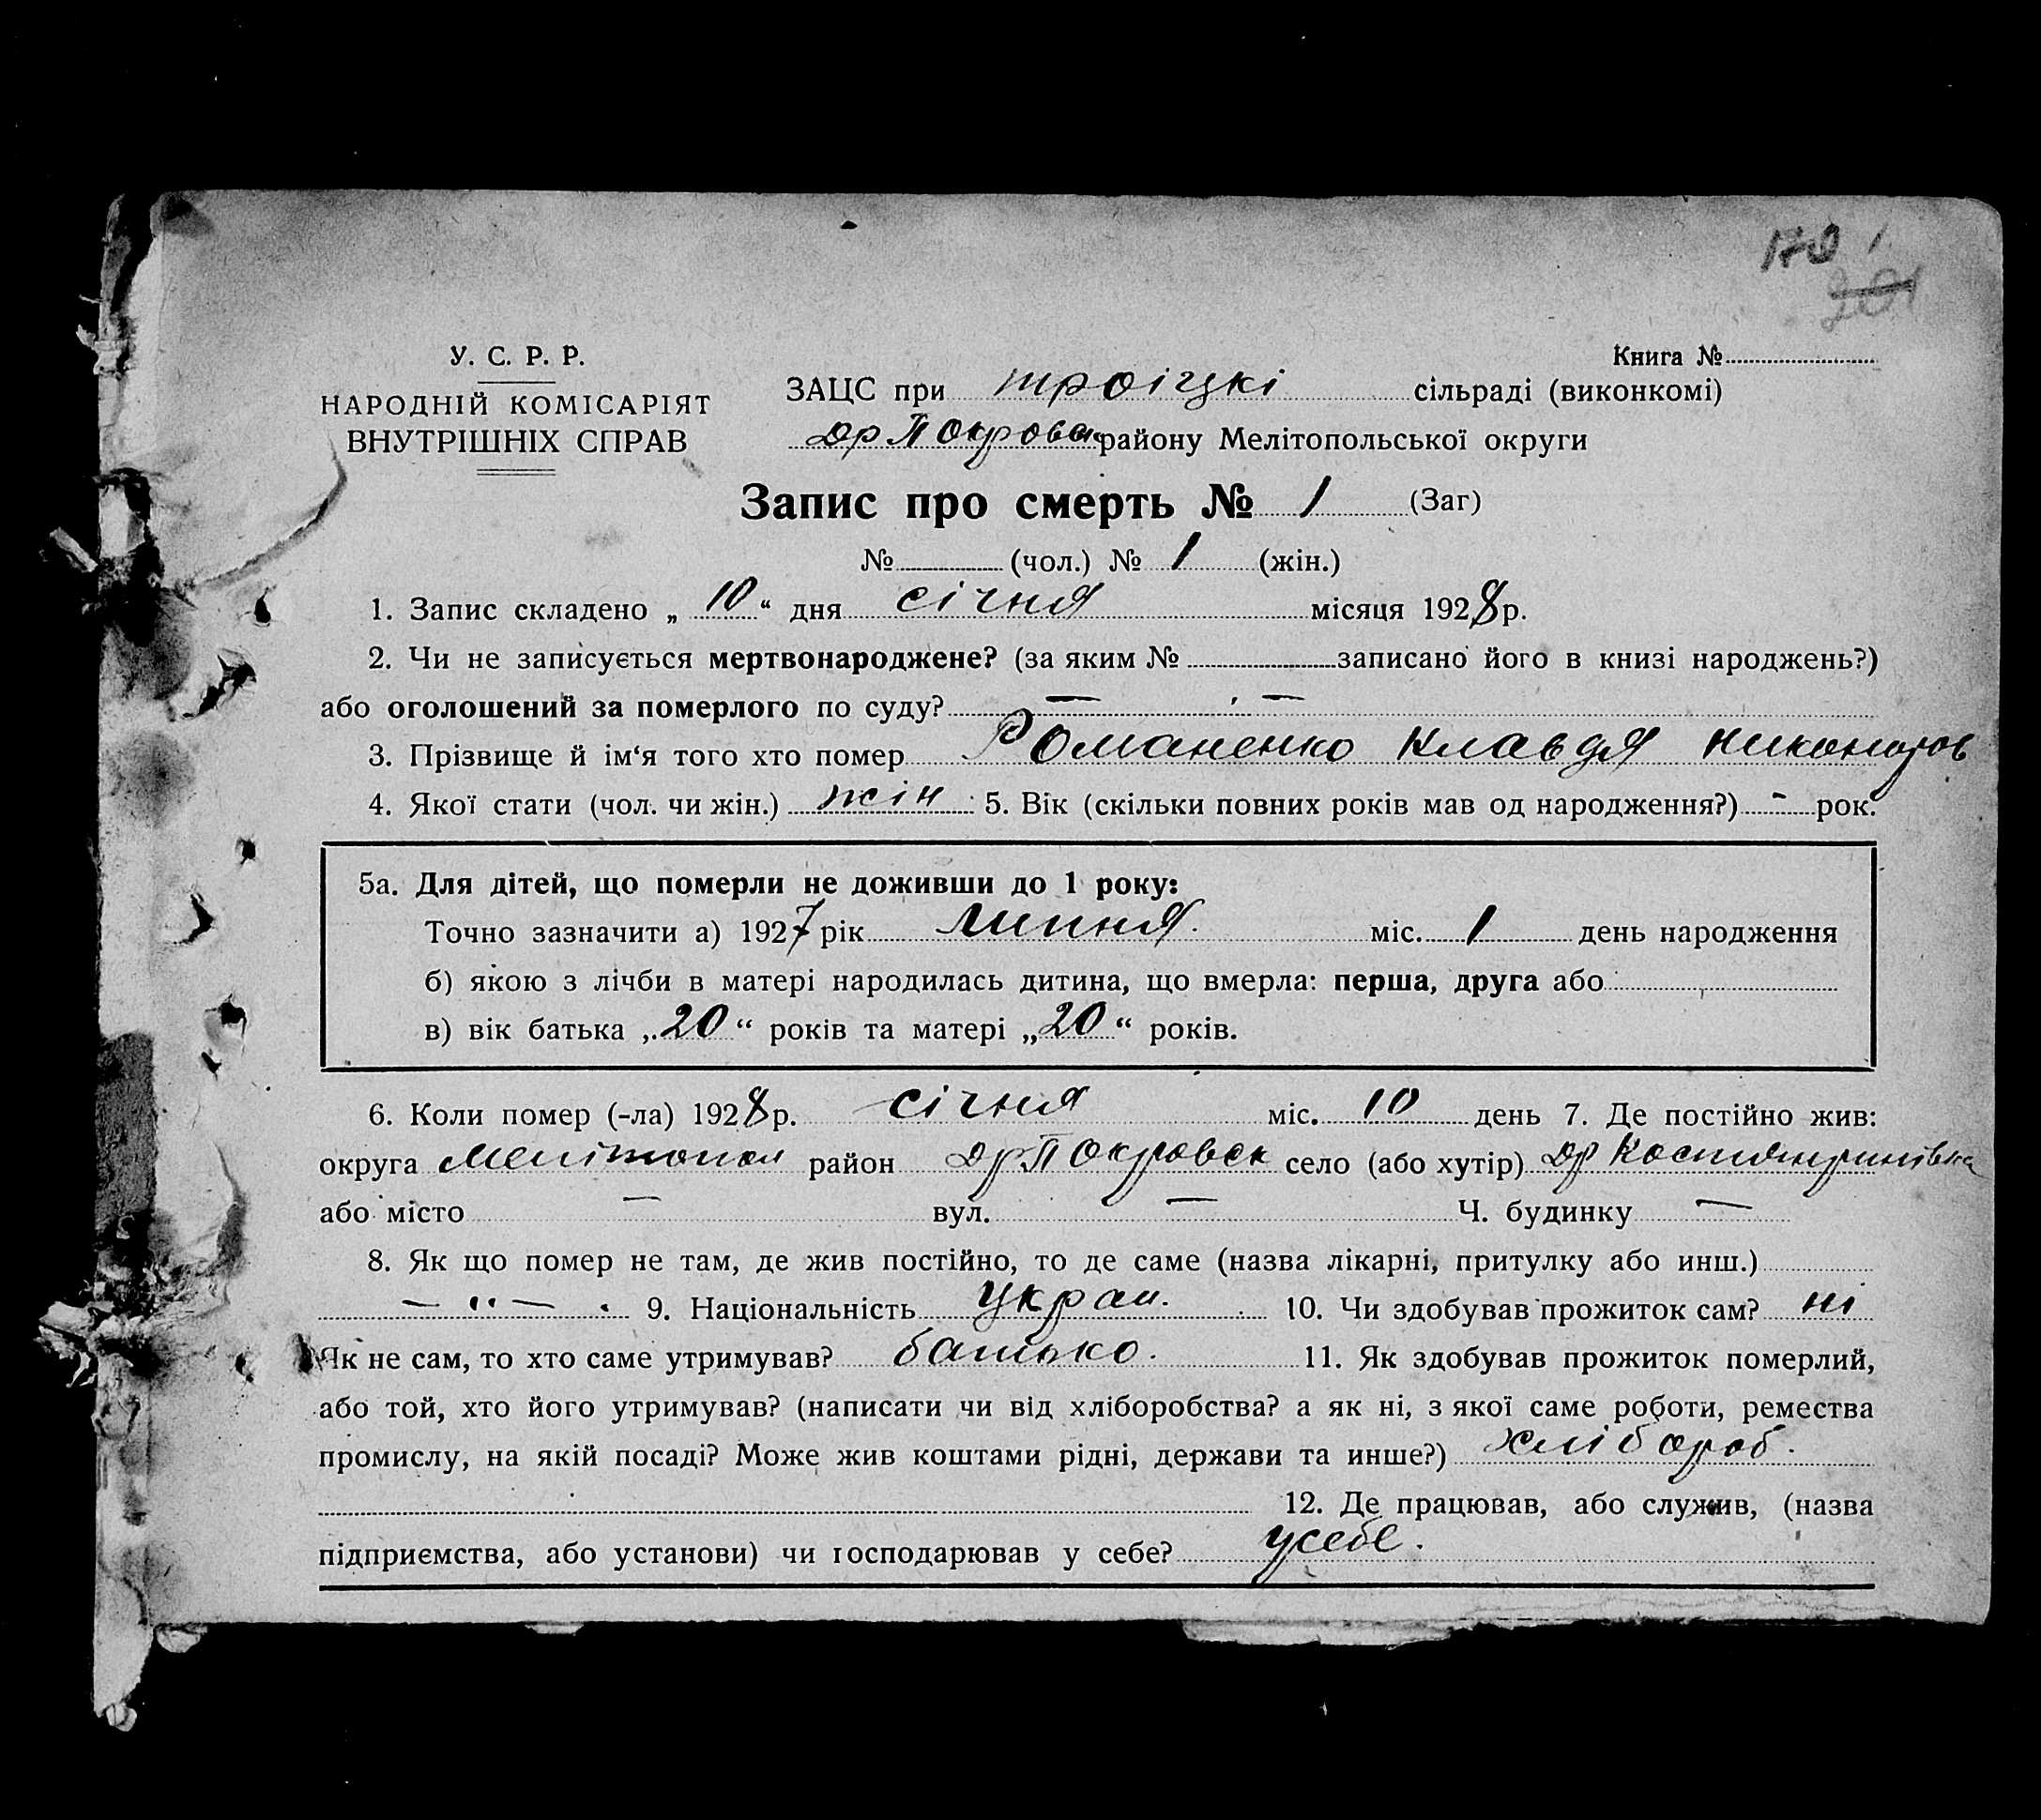 170 1
201
У. С. Р. Р.
НАРОДНІЙ КОМІСАРІЯТ
ВНУТРІШНІХ СПРАВ
Книга №
ЗАЦС при троіцкі сільраді (виконкомі)
району Мелітопольської округи
Запис про смерть № 1 (Заг)
№ (чол.) № 1 (жін.)
1. Запис складено „ 10 “ дня січня місяця 1928 р.
2. Чи не записується мертвонароджене? (за яким № записано його в книзі народжень?)
або оголошений за померлого по суду? — —
3. Прізвище й ім‘я того хто помер Романенко Клавдя
4. Якої стати (чол. чи жін.) жін 5. Вік (скільки повних років мав од народження?) - рок.
5а. Для дітей, що померли не доживши до 1 року:
Точно зазначити а) 1927 рік липня. міс. 1 день народження
б) якою з лічби в матері народилась дитина, що вмерла: перша, друга або
в) вік батька „ 20 “ років та матері „ 20 “ років.
6. Коли помер (-ла) 1928 р. січня міс. 10 день 7. Де постійно жив:
округа Мелітопол район ДрПокровск село (або хутір)
або місто — вул. — Ч. будинку —
8. Як що помер не там, де жив постійно, то де саме (назва лікарні, притулку або инш.)
— " — . 9. Національність Украи. 10. Чи здобував прожиток сам? ні
Як не сам, то хто саме утримував? батько. 11. Як здобував прожиток померлий,
або той, хто його утримував? (написати чи від хліборобства? а як ні, з якої саме роботи, ремества
промислу, на якій посаді? Може жив коштами рідні, держави та инше?) хлібороб.
12. Де працював, або служив, (назва
підприємства, або установи) чи господарював у себе? усебе.